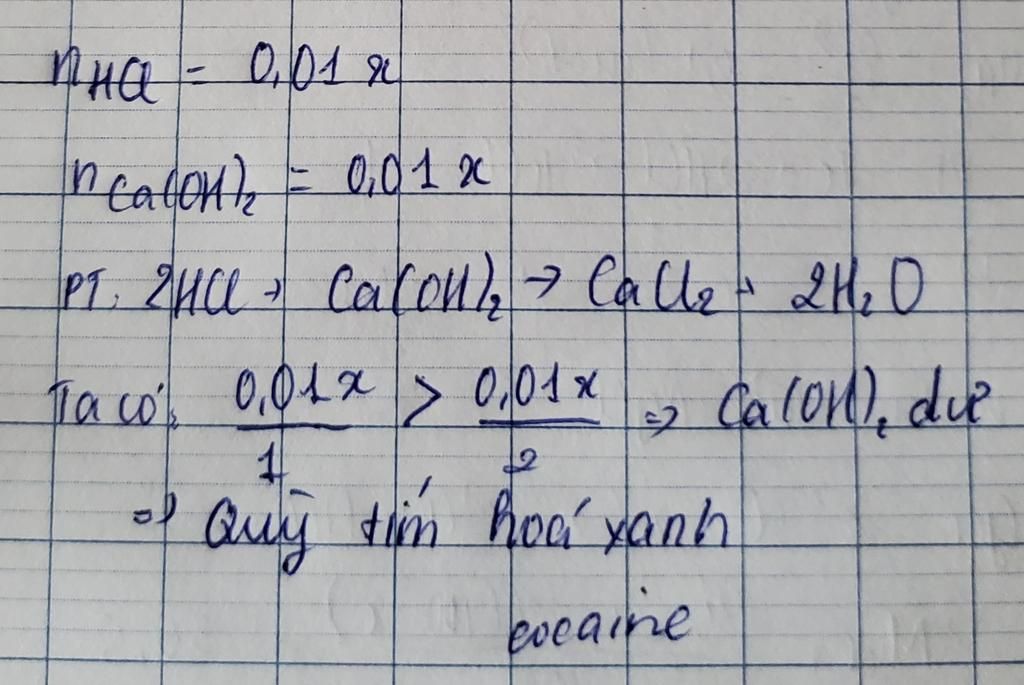 nHCl = 0,01 x
nCa(OH)2 = 0,01 x
PT: 2HCl + Ca(OH)2 → CaCl2 + 2H2O
Ta có: 0,01x/1 > 0,01x/2 => Ca(OH)2 dư
=> Quỳ tím hoá xanh
cocaine